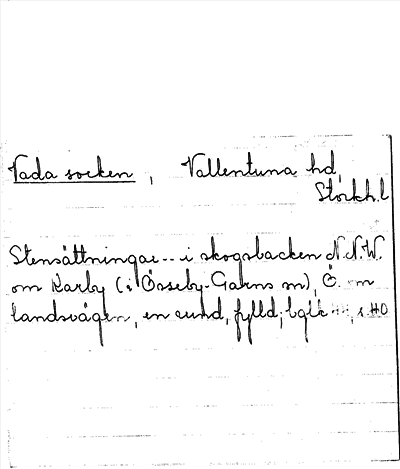 Vada socken, Vallentuna hd,
Stockh.l
Stensättningar -- i skogsbacken N.N.W.
om Karby (i Össeby-Garns sn), Ö. om
landsvägen, en rund, fylld;